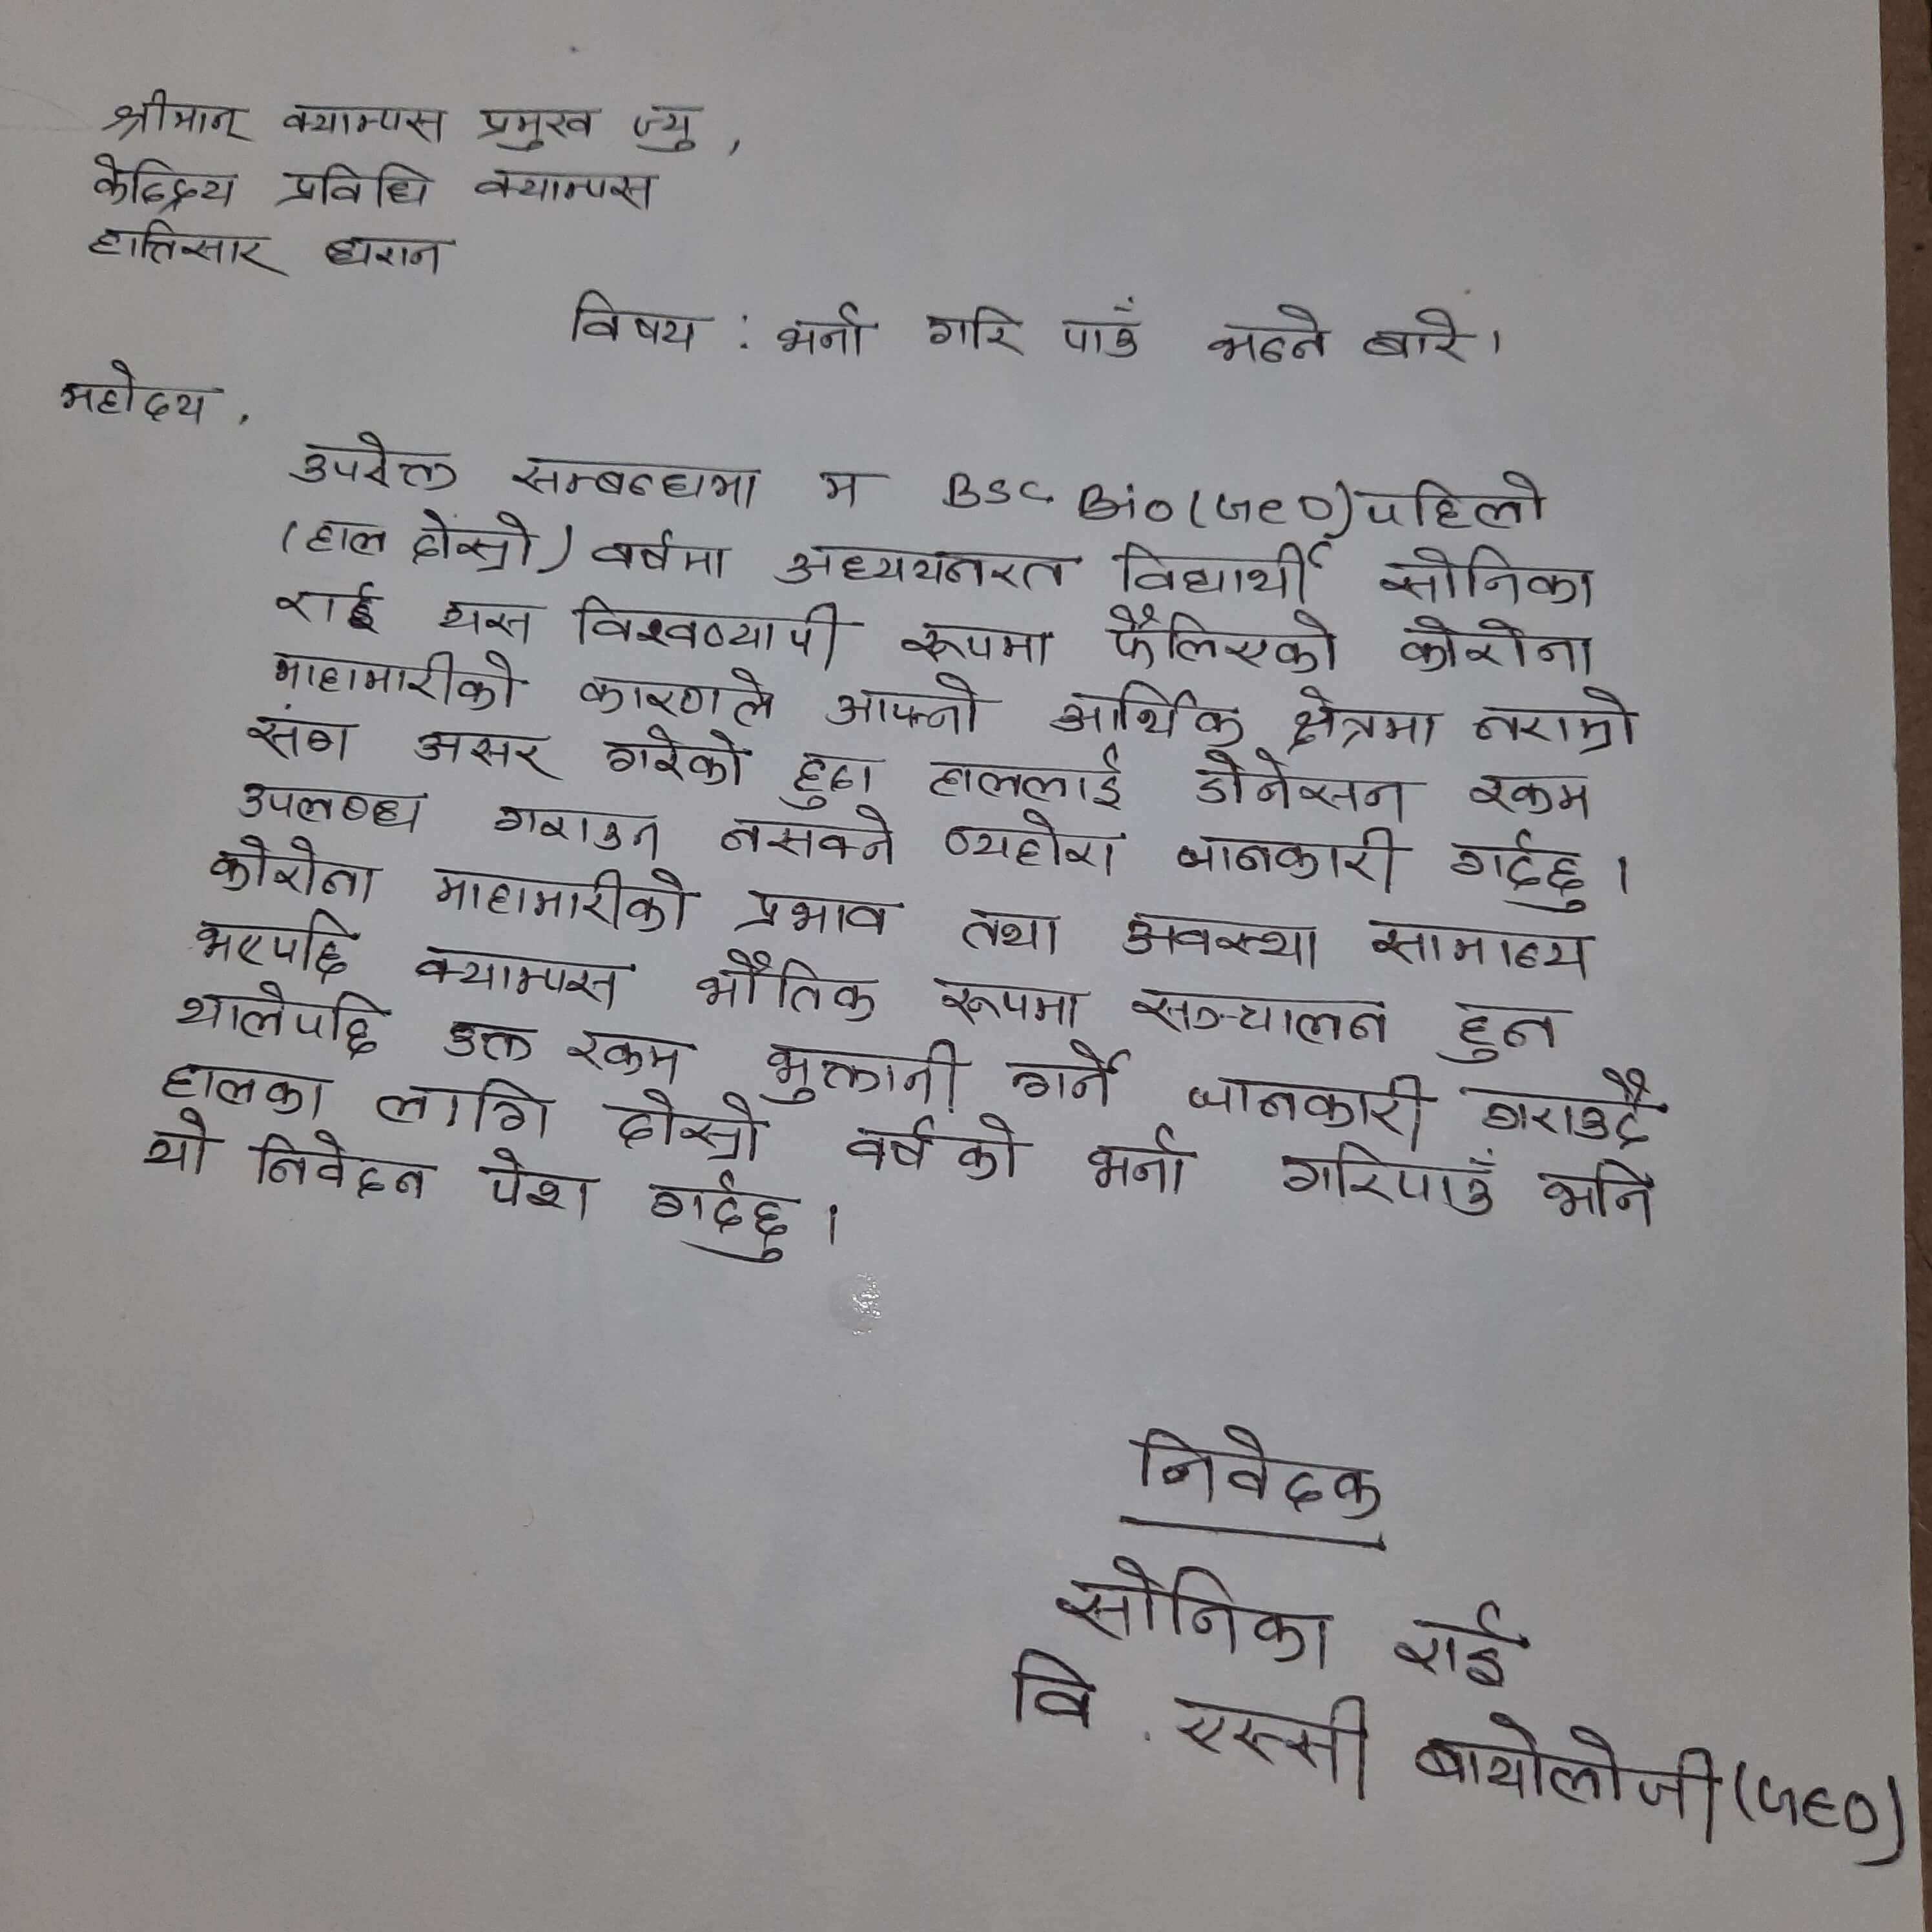 श्रीमान् क्याम्पस प्रमुख ज्यु,
केन्द्रिय प्रविधि क्याम्पस
हात्तिसार धरान
विषय : भर्ना गरि पाउँ भन्ने बारे।
महोदय,
उपरोक्त सम्बन्धमा म BSC Bio(Geo) पहिलो
(हाल दोस्रो) वर्षमा अध्ययनरत विद्यार्थी सोनिका
राई यस विश्वव्यापी रूपमा फैलिएको कोरोना
माहामारीको कारणले आफ्नो आर्थिक क्षेत्रमा नराम्रो
संग असर गरेको हुदा हाललाई डोनेसन रकम
उपलब्ध गराउन नसक्ने व्यहोरा जानकारी गर्दछु।
कोरोना माहामारीको प्रभाव तथा अवस्था सामान्य
भएपछि क्याम्पस भौतिक रूपमा सञ्चालन हुन
थालेपछि उक्त रकम भुक्तानी गर्ने जानकारी गराउदै
हालका लागि दोस्रो वर्षको भर्ना गरिपाउँ भनि
यो निवेदन पेश गर्दछु।
निवेदक
सोनिका राई
वि. एस्सी बायोलोजी (GEO)